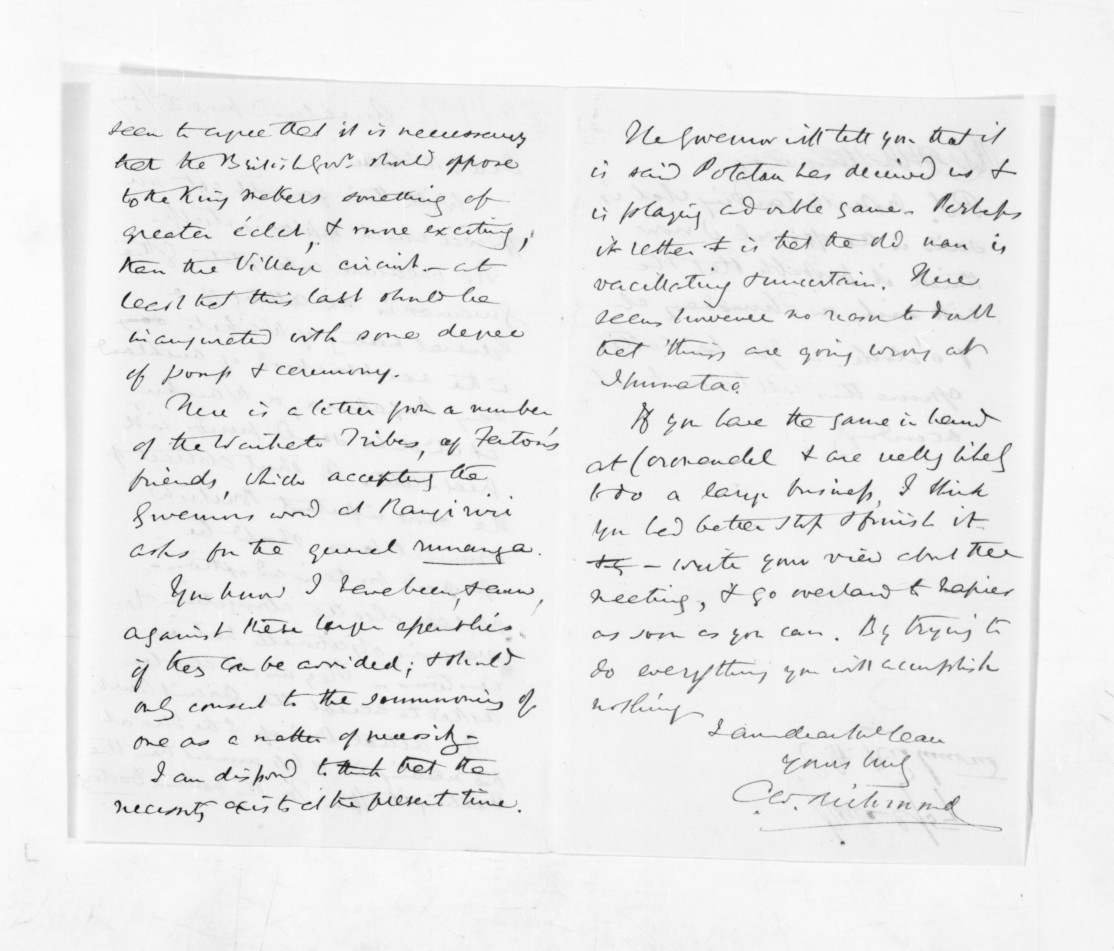 seem to agree that it is necessary
that the British Govt. should oppose
to the King makers something of
greater éclat, & more exciting,
than the Village circuit – at
least that this last should be
inaugurated with some degree
of pomp & ceremony.
There is a letter from a number
of the Waikato Tribes, of Fenton's
friends, which accepting the
Governor's word at Rangiriri
asks for the general runanga.
You know I have been, & am,
against these larger assemblies
if they can be avoided; & should
only consent to the summoning of
one as a matter of necessity –
I am disposed to think that the
necessity exists at the present time.
The Governor will tell you that it
is said Potatau has deceived us &
is playing a double game. Perhaps
it rather is that the old man is
vacillating & uncertain. There
seems however no reason to doubt
that things are going wrong at
Ihumatao.
If you have the game in hand
at Coromandel & are really likely
to do a large business, I think
you had better stop & finish it
– write your view about the
meeting, & go overland to Napier
as soon as you can. By trying to
do everything you will accomplish
nothing
I am dear McLean
Yours truly
CW. Richmond